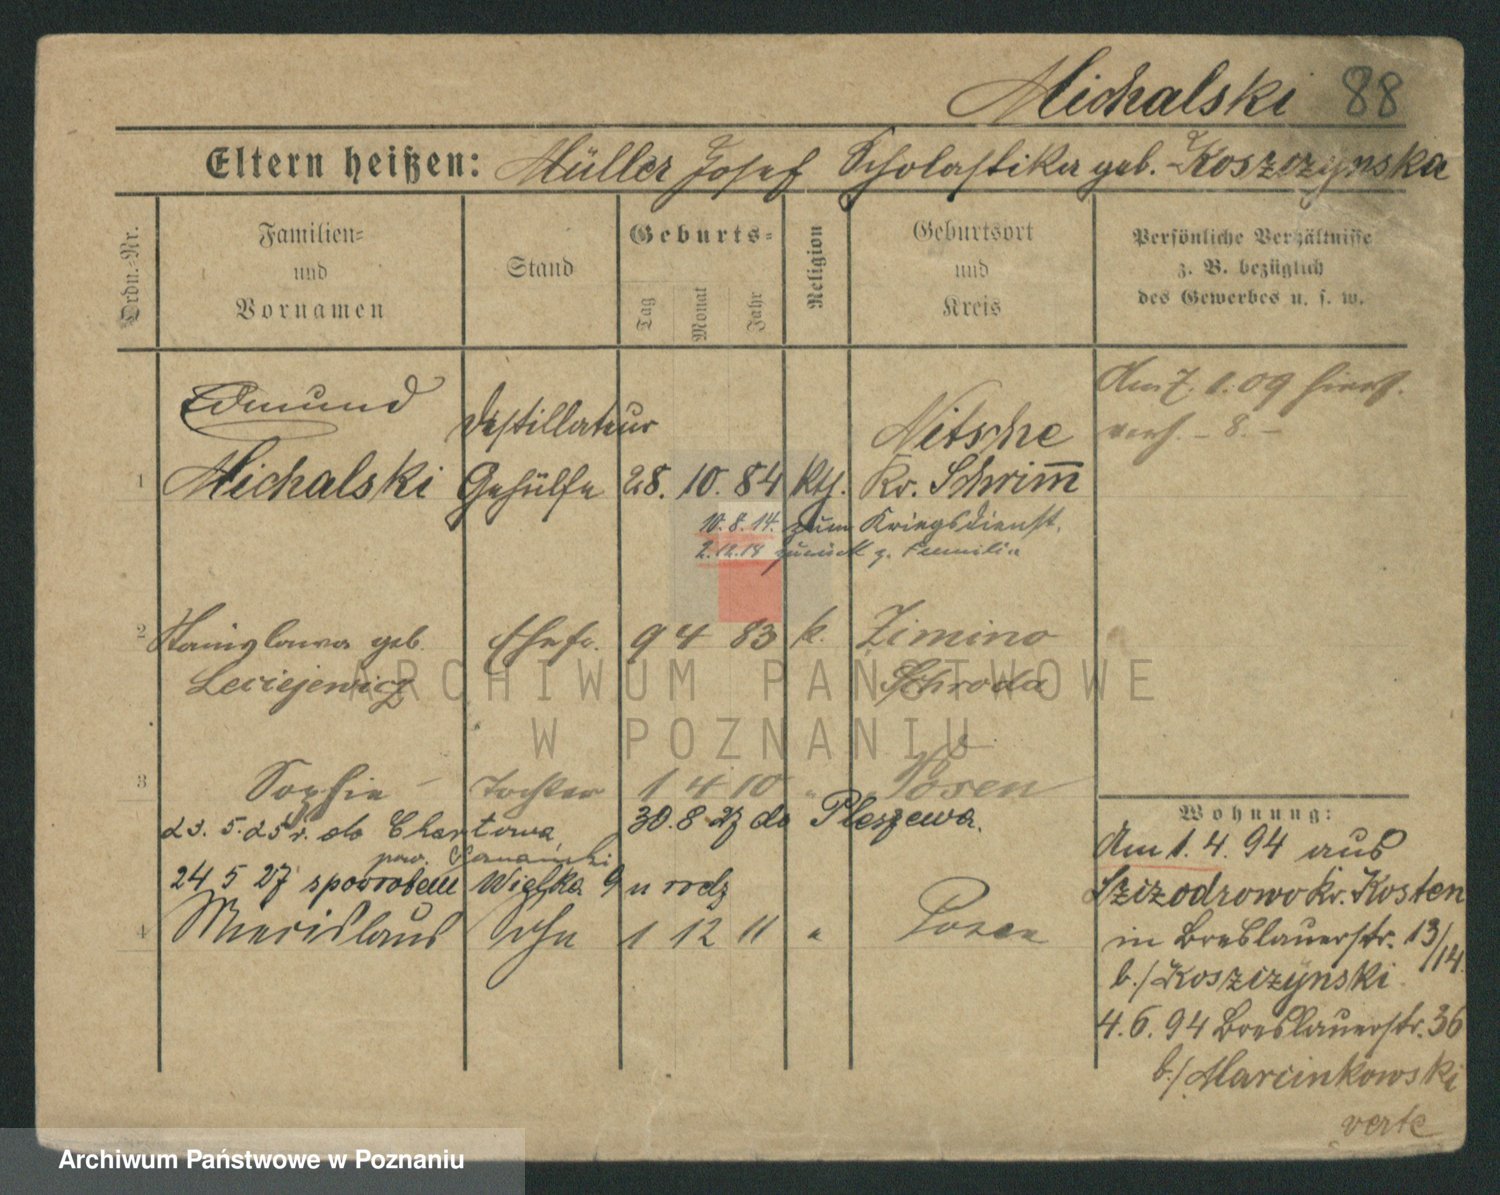 Michalski 88
Eltern heißen: Müller Josef Scholastika geb. Koszczynska
Ordn.-Nr.
Familien- und Vornamen
Stand
Geburts-
Tag Monat Jahr
Religion
Geburtsort und Kreis
Persönliche Verhältnisse z. B. bezüglich des Gewerbes u. s. w.
Edmund
Destillateur
Nitsche
Am 7. 1. 09
verh. - 8. -
1 Michalski Gehülfe 28. 10. 84 Kth. Kr. Schrimm
10. 8. 14. zum Kriegsdienst.
2.12.18 zurück z. Familie
2 Stanislawa geb. Ehefr. 9 4 83 k. Zimino
Leciejewicz Schroda
ARCHIWUM PAŃSTWOWE
W POZNANIU
3 Sophie - Tochter 1 4 10 " Posen
23. 5. 25 r. do Chartowa 30. 8 27 do Pleszewa.
pow. Poznański
24 5 27 spowrotem Wielka 9 u rodz
4 Sohn 1 12 11 " Posen
Wohnung:
Am 1. 4. 94 aus
Kr. Kosten
in Breslauerstr. 13/14.
b./Koszczynski
4. 6. 94 Breslauerstr. 36
b./Marcinkowski
verte
Archiwum Państwowe w Poznaniu